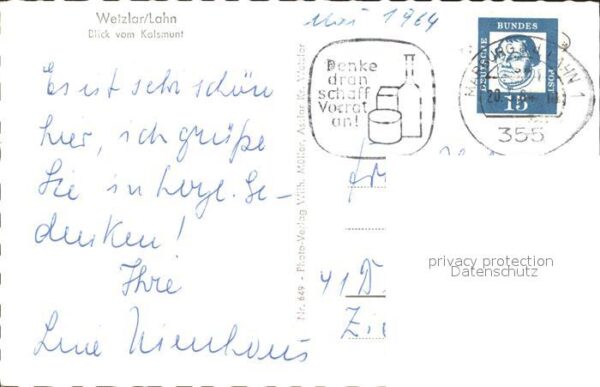 Wetzlar/Lahn
Blick vom Kalsmunt
Mai 1964
Es ist sehr schön
hier, ich grüße
Sie in herzl. Ge-
denken!
Ihre
Nr. 649 - Photo-Verlag Wilh. Müller, Wetzlar
Denke
dran
schaff
Vorrat
an!
DEUTSCHE
BUNDES
POST
15
MARBURG LAHN 1
20.
355
41 D
privacy protection
Datenschutz